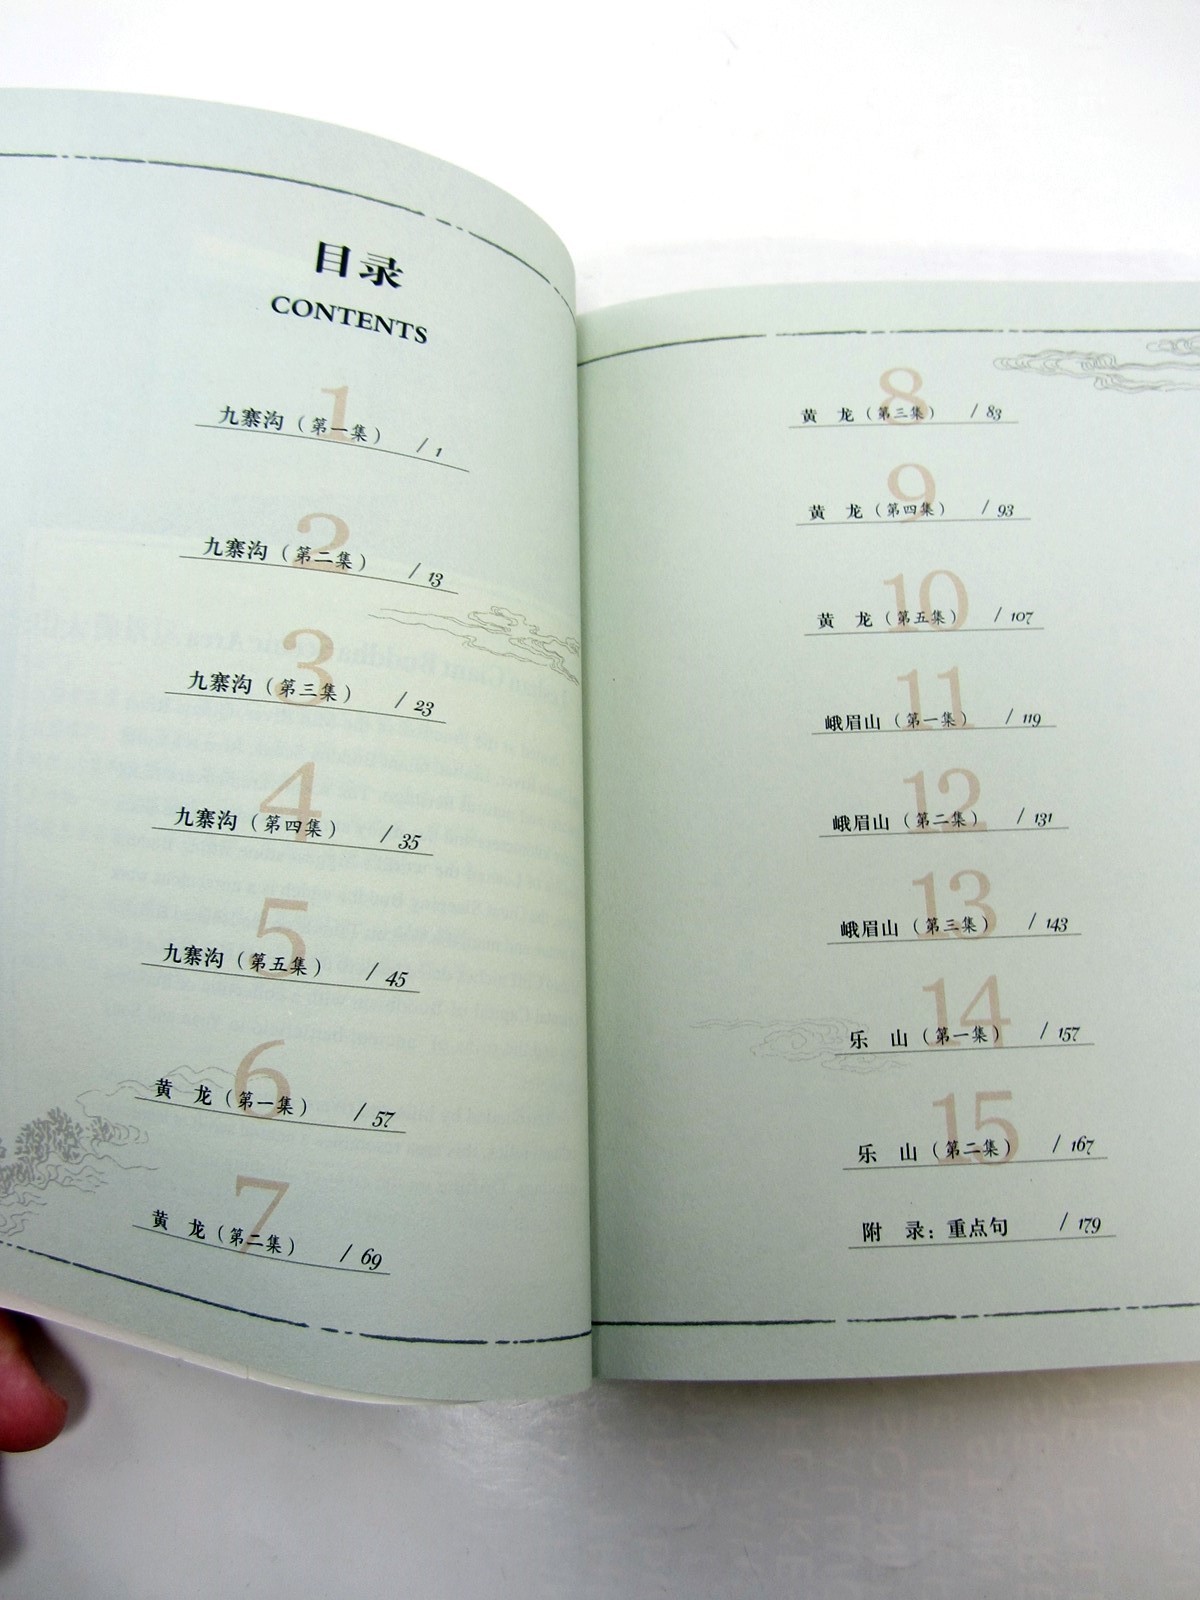 目录
CONTENTS
1
九寨沟（第一集） / 1
2
九寨沟（第二集） / 13
3
九寨沟（第三集） / 23
4
九寨沟（第四集） / 35
5
九寨沟（第五集） / 45
6
黄 龙（第一集） / 57
7
黄 龙（第二集） / 69
8
黄 龙（第三集） / 83
9
黄 龙（第四集） / 93
10
黄 龙（第五集） / 107
11
峨眉山（第一集） / 119
12
峨眉山（第二集） / 131
13
峨眉山（第三集） / 143
14
乐 山（第一集） / 157
15
乐 山（第二集） / 167
附 录：重点句 / 179